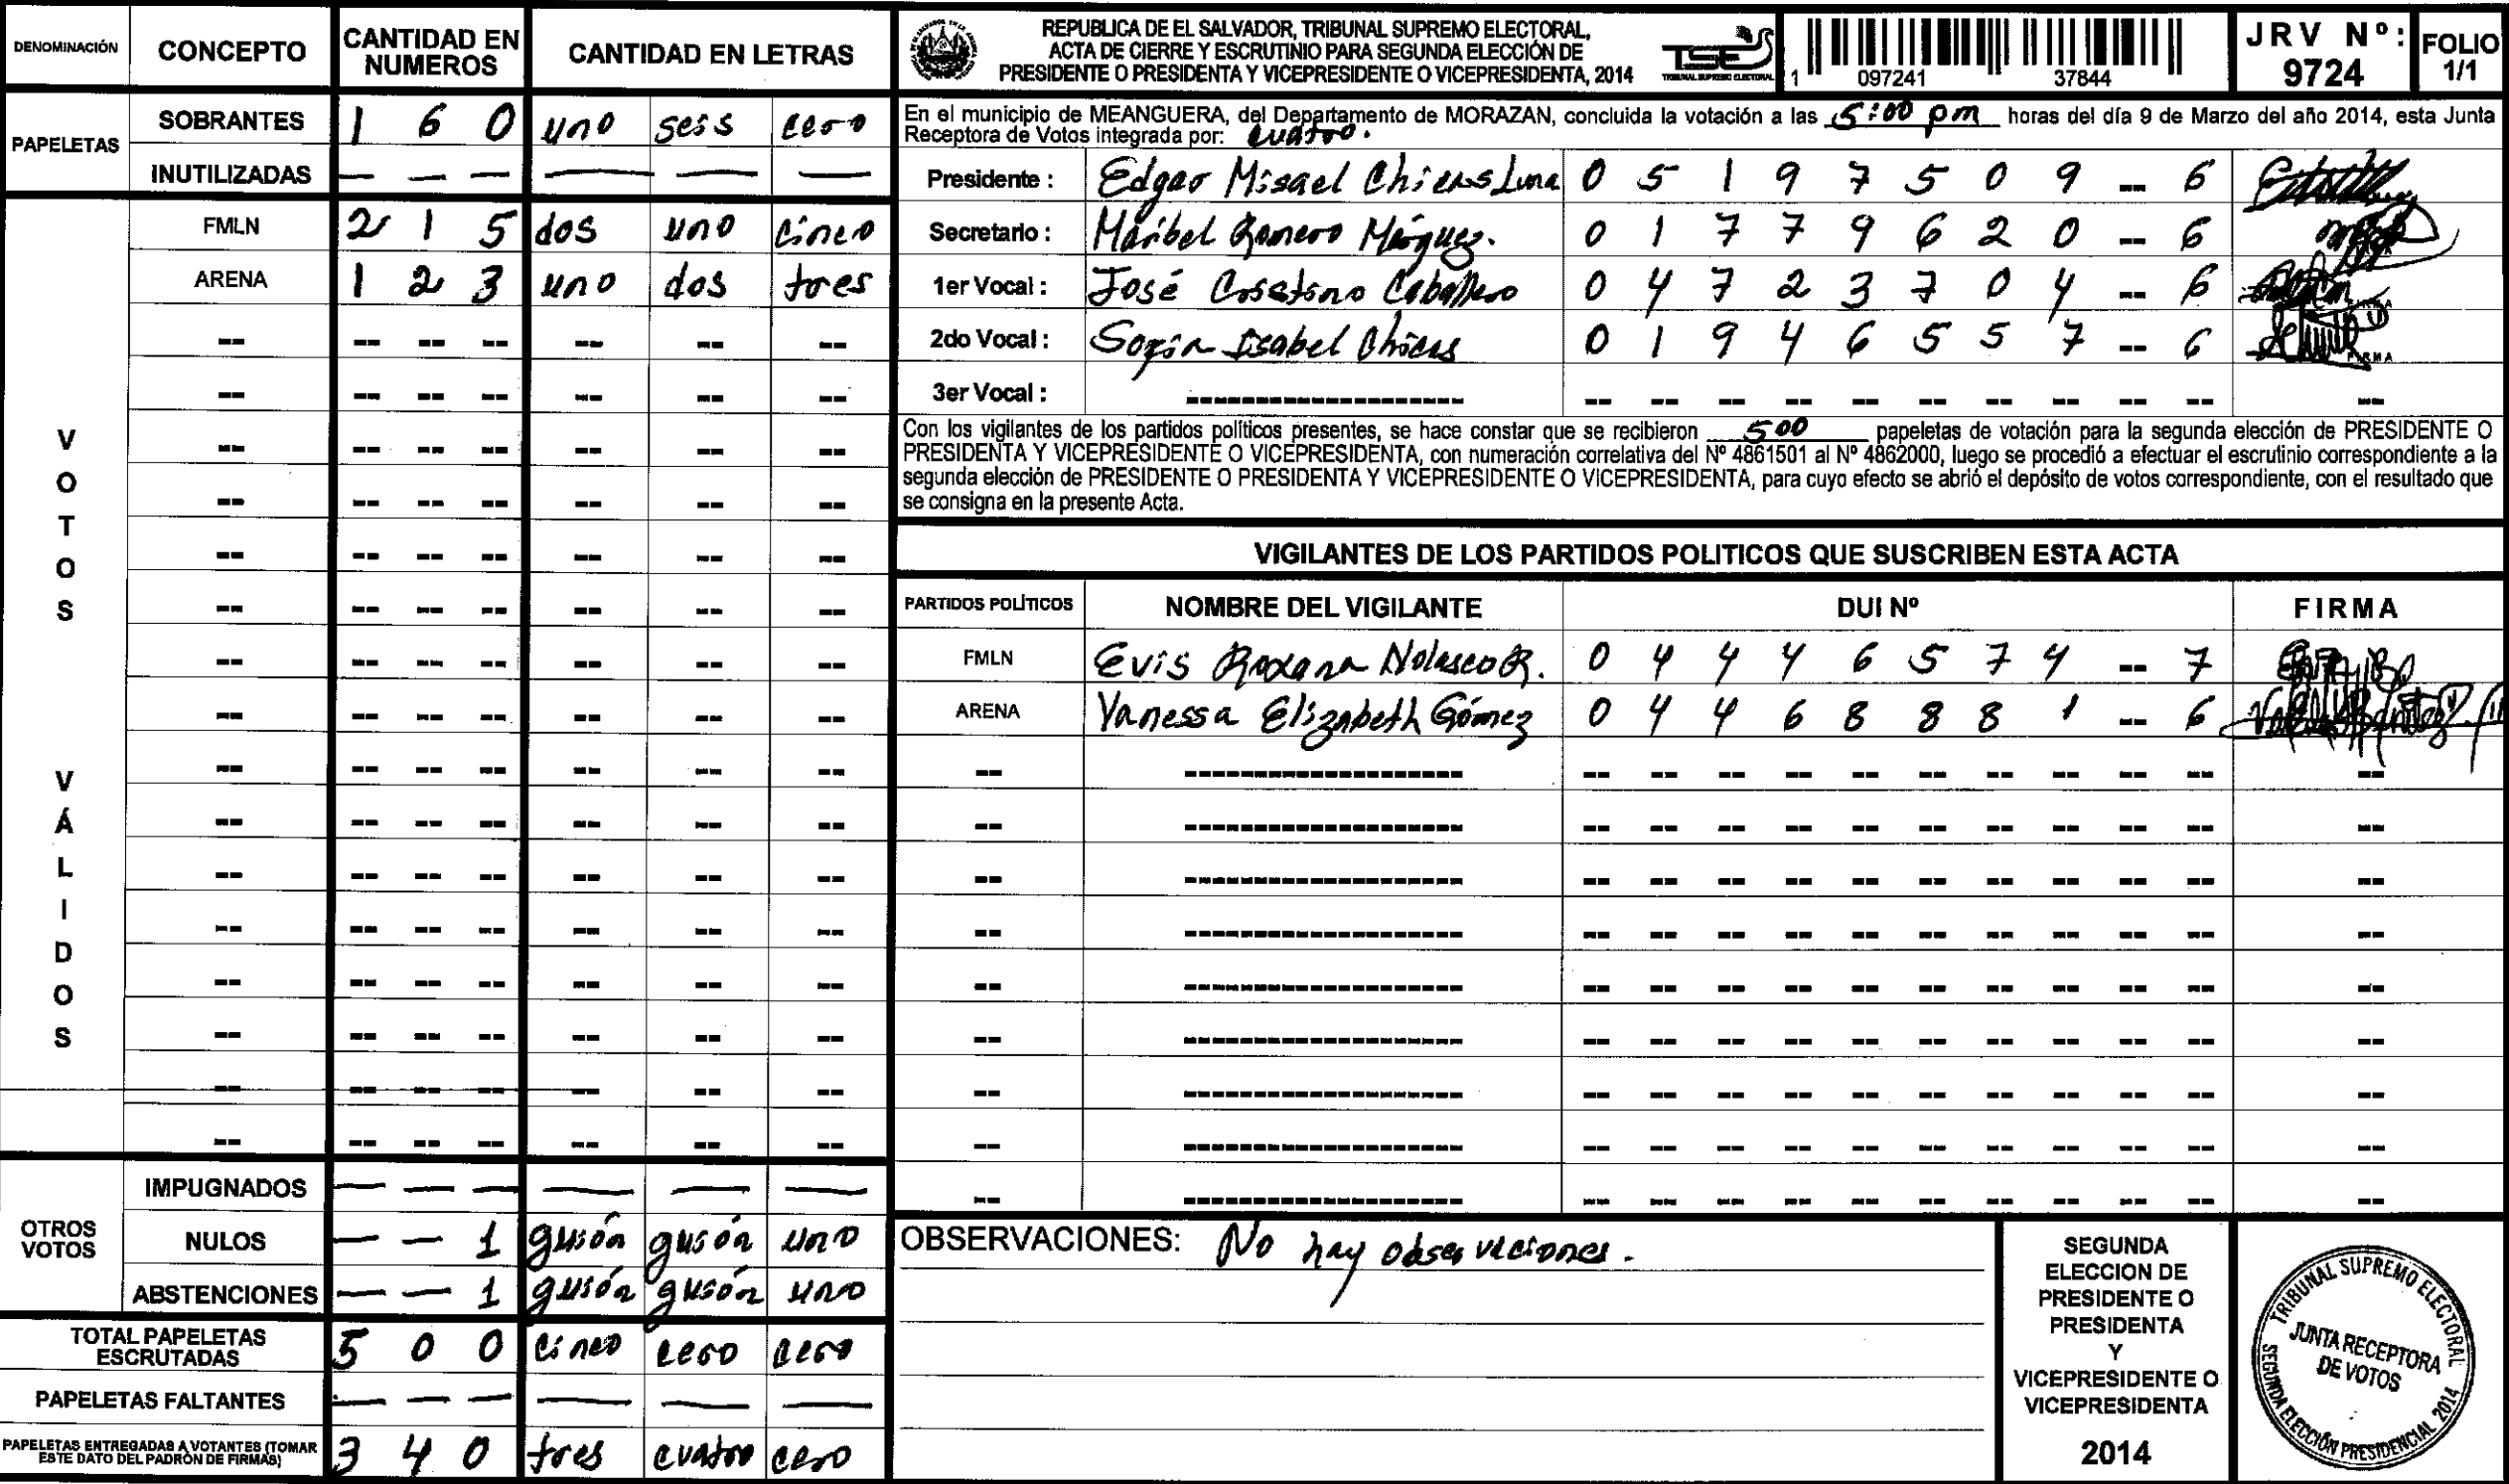 DENOMINACIÓN CONCEPTO CANTIDAD EN NUMEROS CANTIDAD EN LETRAS
PAPELETAS
SOBRANTES 1 6 0 uno seis cero
INUTILIZADAS — — — — — —
VOTOS VÁLIDOS
FMLN 2 1 5 dos uno cinco
ARENA 1 2 3 uno dos tres
OTROS VOTOS
IMPUGNADOS — — — — — —
NULOS — — 1 guión guión uno
ABSTENCIONES — — 1 guión guión uno
TOTAL PAPELETAS ESCRUTADAS 5 0 0 cinco cero cero
PAPELETAS FALTANTES — — — — — —
PAPELETAS ENTREGADAS A VOTANTES (TOMAR ESTE DATO DEL PADRÓN DE FIRMAS) 3 4 0 tres cuatro cero
REPUBLICA DE EL SALVADOR, TRIBUNAL SUPREMO ELECTORAL,
ACTA DE CIERRE Y ESCRUTINIO PARA SEGUNDA ELECCIÓN DE
PRESIDENTE O PRESIDENTA Y VICEPRESIDENTE O VICEPRESIDENTA, 2014
TSE
TRIBUNAL SUPREMO ELECTORAL
1 097241 37844
JRV Nº: 9724
FOLIO 1/1
En el municipio de MEANGUERA, del Departamento de MORAZAN, concluida la votación a las 5:00 pm horas del día 9 de Marzo del año 2014, esta Junta
Receptora de Votos integrada por: cuatro.
Presidente : Edgar Misael Chicas Luna 0 5 1 9 7 5 0 9 -- 6
Secretario : Maribel Romero Márquez. 0 1 7 7 9 6 2 0 -- 6
1er Vocal : José Caballero 0 4 7 2 3 7 0 4 -- 6
2do Vocal : Isabel Chicas 0 1 9 4 6 5 5 7 -- 6
3er Vocal :
Con los vigilantes de los partidos políticos presentes, se hace constar que se recibieron 500 papeletas de votación para la segunda elección de PRESIDENTE O
PRESIDENTA Y VICEPRESIDENTE O VICEPRESIDENTA, con numeración correlativa del Nº 4861501 al Nº 4862000, luego se procedió a efectuar el escrutinio correspondiente a la
segunda elección de PRESIDENTE O PRESIDENTA Y VICEPRESIDENTE O VICEPRESIDENTA, para cuyo efecto se abrió el depósito de votos correspondiente, con el resultado que
se consigna en la presente Acta.
VIGILANTES DE LOS PARTIDOS POLITICOS QUE SUSCRIBEN ESTA ACTA
PARTIDOS POLÍTICOS NOMBRE DEL VIGILANTE DUI Nº FIRMA
FMLN Evis Roxana Nolasco R. 0 4 4 4 6 5 7 4 -- 7
ARENA Vanessa Elizabeth Gómez 0 4 4 6 8 8 8 1 -- 6
OBSERVACIONES: No hay observaciones.
SEGUNDA
ELECCION DE
PRESIDENTE O
PRESIDENTA
Y
VICEPRESIDENTE O
VICEPRESIDENTA
2014
TRIBUNAL SUPREMO ELECTORAL
JUNTA RECEPTORA
DE VOTOS
SEGUNDA ELECCIÓN PRESIDENCIAL 2014